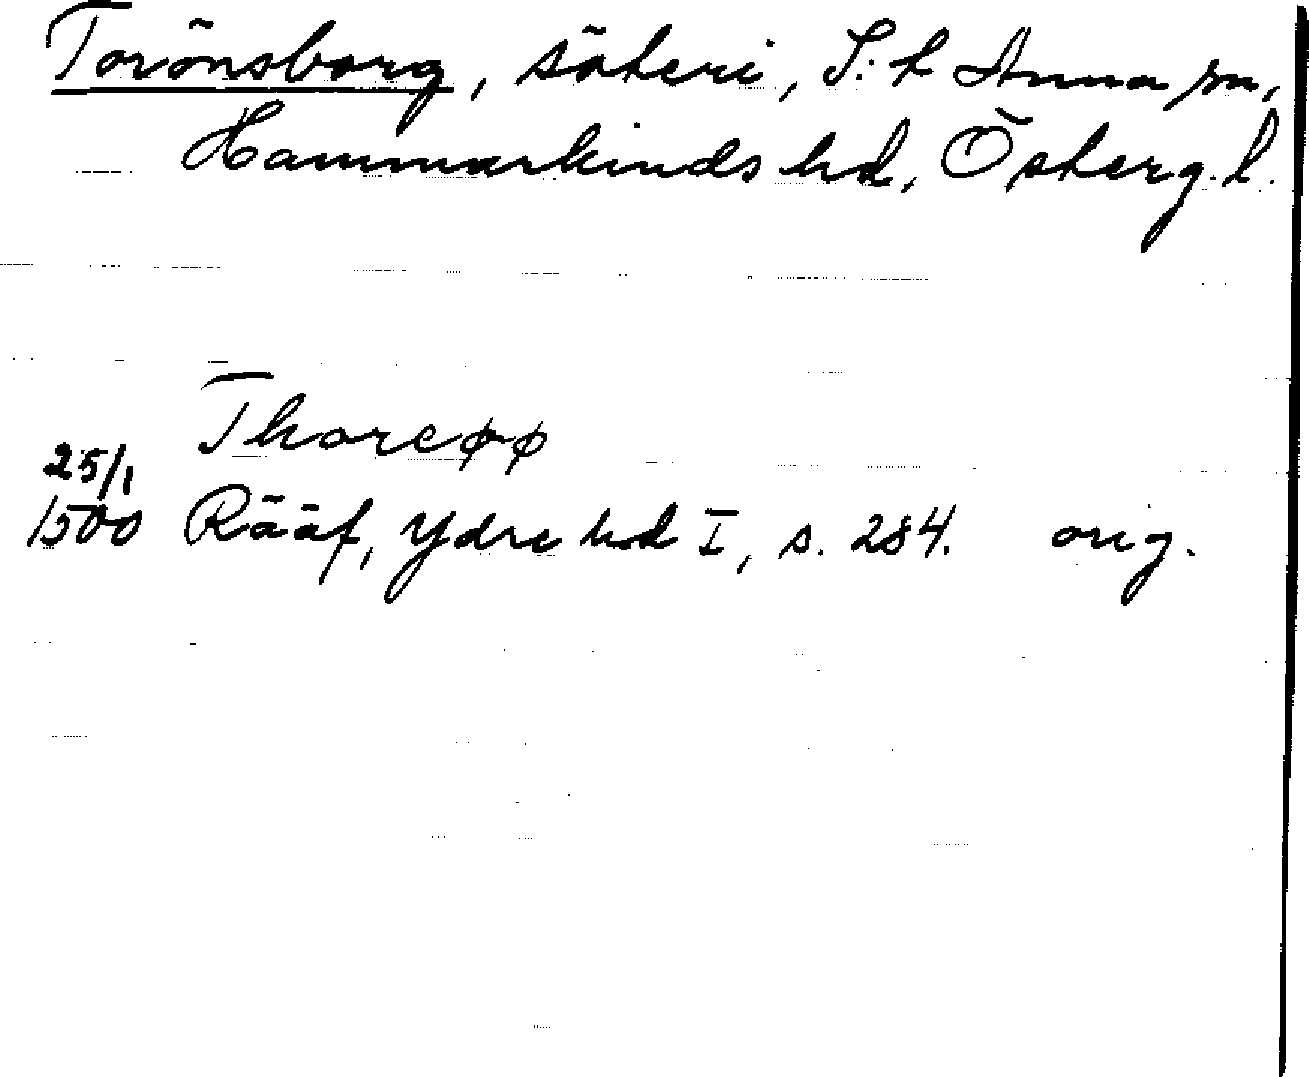 Torönsborg, säteri, S:t Anna sn,
Hammarkinds hd, Österg. l.
Thoreøø
25/1
1500 Rääf, Ydre hd I, s. 284. orig.